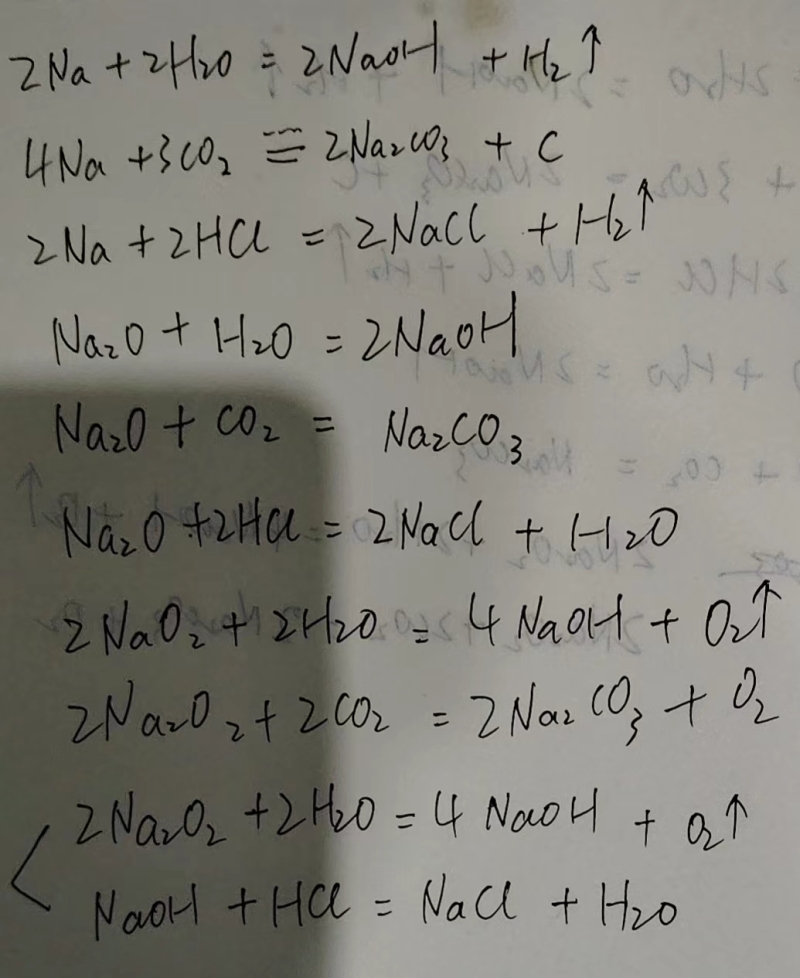 2Na + 2H₂O = 2NaOH + H₂↑
4Na + 3CO₂ = 2Na₂CO₃ + C
2Na + 2HCl = 2NaCl + H₂↑
Na₂O + H₂O = 2NaOH
Na₂O + CO₂ = Na₂CO₃
Na₂O + 2HCl = 2NaCl + H₂O
2NaO₂ + 2H₂O = 4NaOH + O₂↑
2Na₂O₂ + 2CO₂ = 2Na₂CO₃ + O₂
2Na₂O₂ + 2H₂O = 4NaOH + O₂↑
NaOH + HCl = NaCl + H₂O